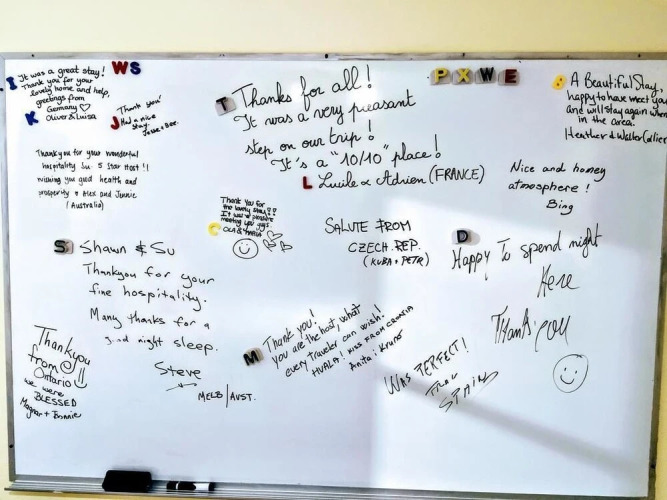 It was a great stay!
Thank you for your
lovely home and help,
greetings from
Germany ♡
Oliver & Luisa
I
K
WS
Thank you!
Had a nice
stay.
J
T
Thanks for all!
It was a very pleasant
step on our trip!
It's a "10/10" place!
L
Lucile & Adrien (FRANCE)
PXWE
8
A Beautiful Stay,
happy to have meet you
and will stay again when
in the area.
Heather &
Thank you for your wonderful
hospitality Su. 5 star Host!!
wishing you good health and
prosperity Alex and Jinnie
(Australia)
Thank You for
the lovely stay!!
It was pleasure
meeting you guys.
C
Nice and homey
atmosphere!
Bing
SALUTE FROM
CZECH. REP.
(KUBA + PETR)
D
Happy To spend night
Here
Thank you
S
Shawn & Su
Thankyou for your
fine hospitality.
Many thanks for a
good night sleep.
Steve
MELB/AUST.
M
Thank you!
You are the host, what
every traveler can wish!
HVALA! KISS FROM CROATIA
Anita i Kruno
WAS PERFECT!
FROM
SPAIN
Thankyou
from
Ontario
we were
BLESSED
+ Bonnie